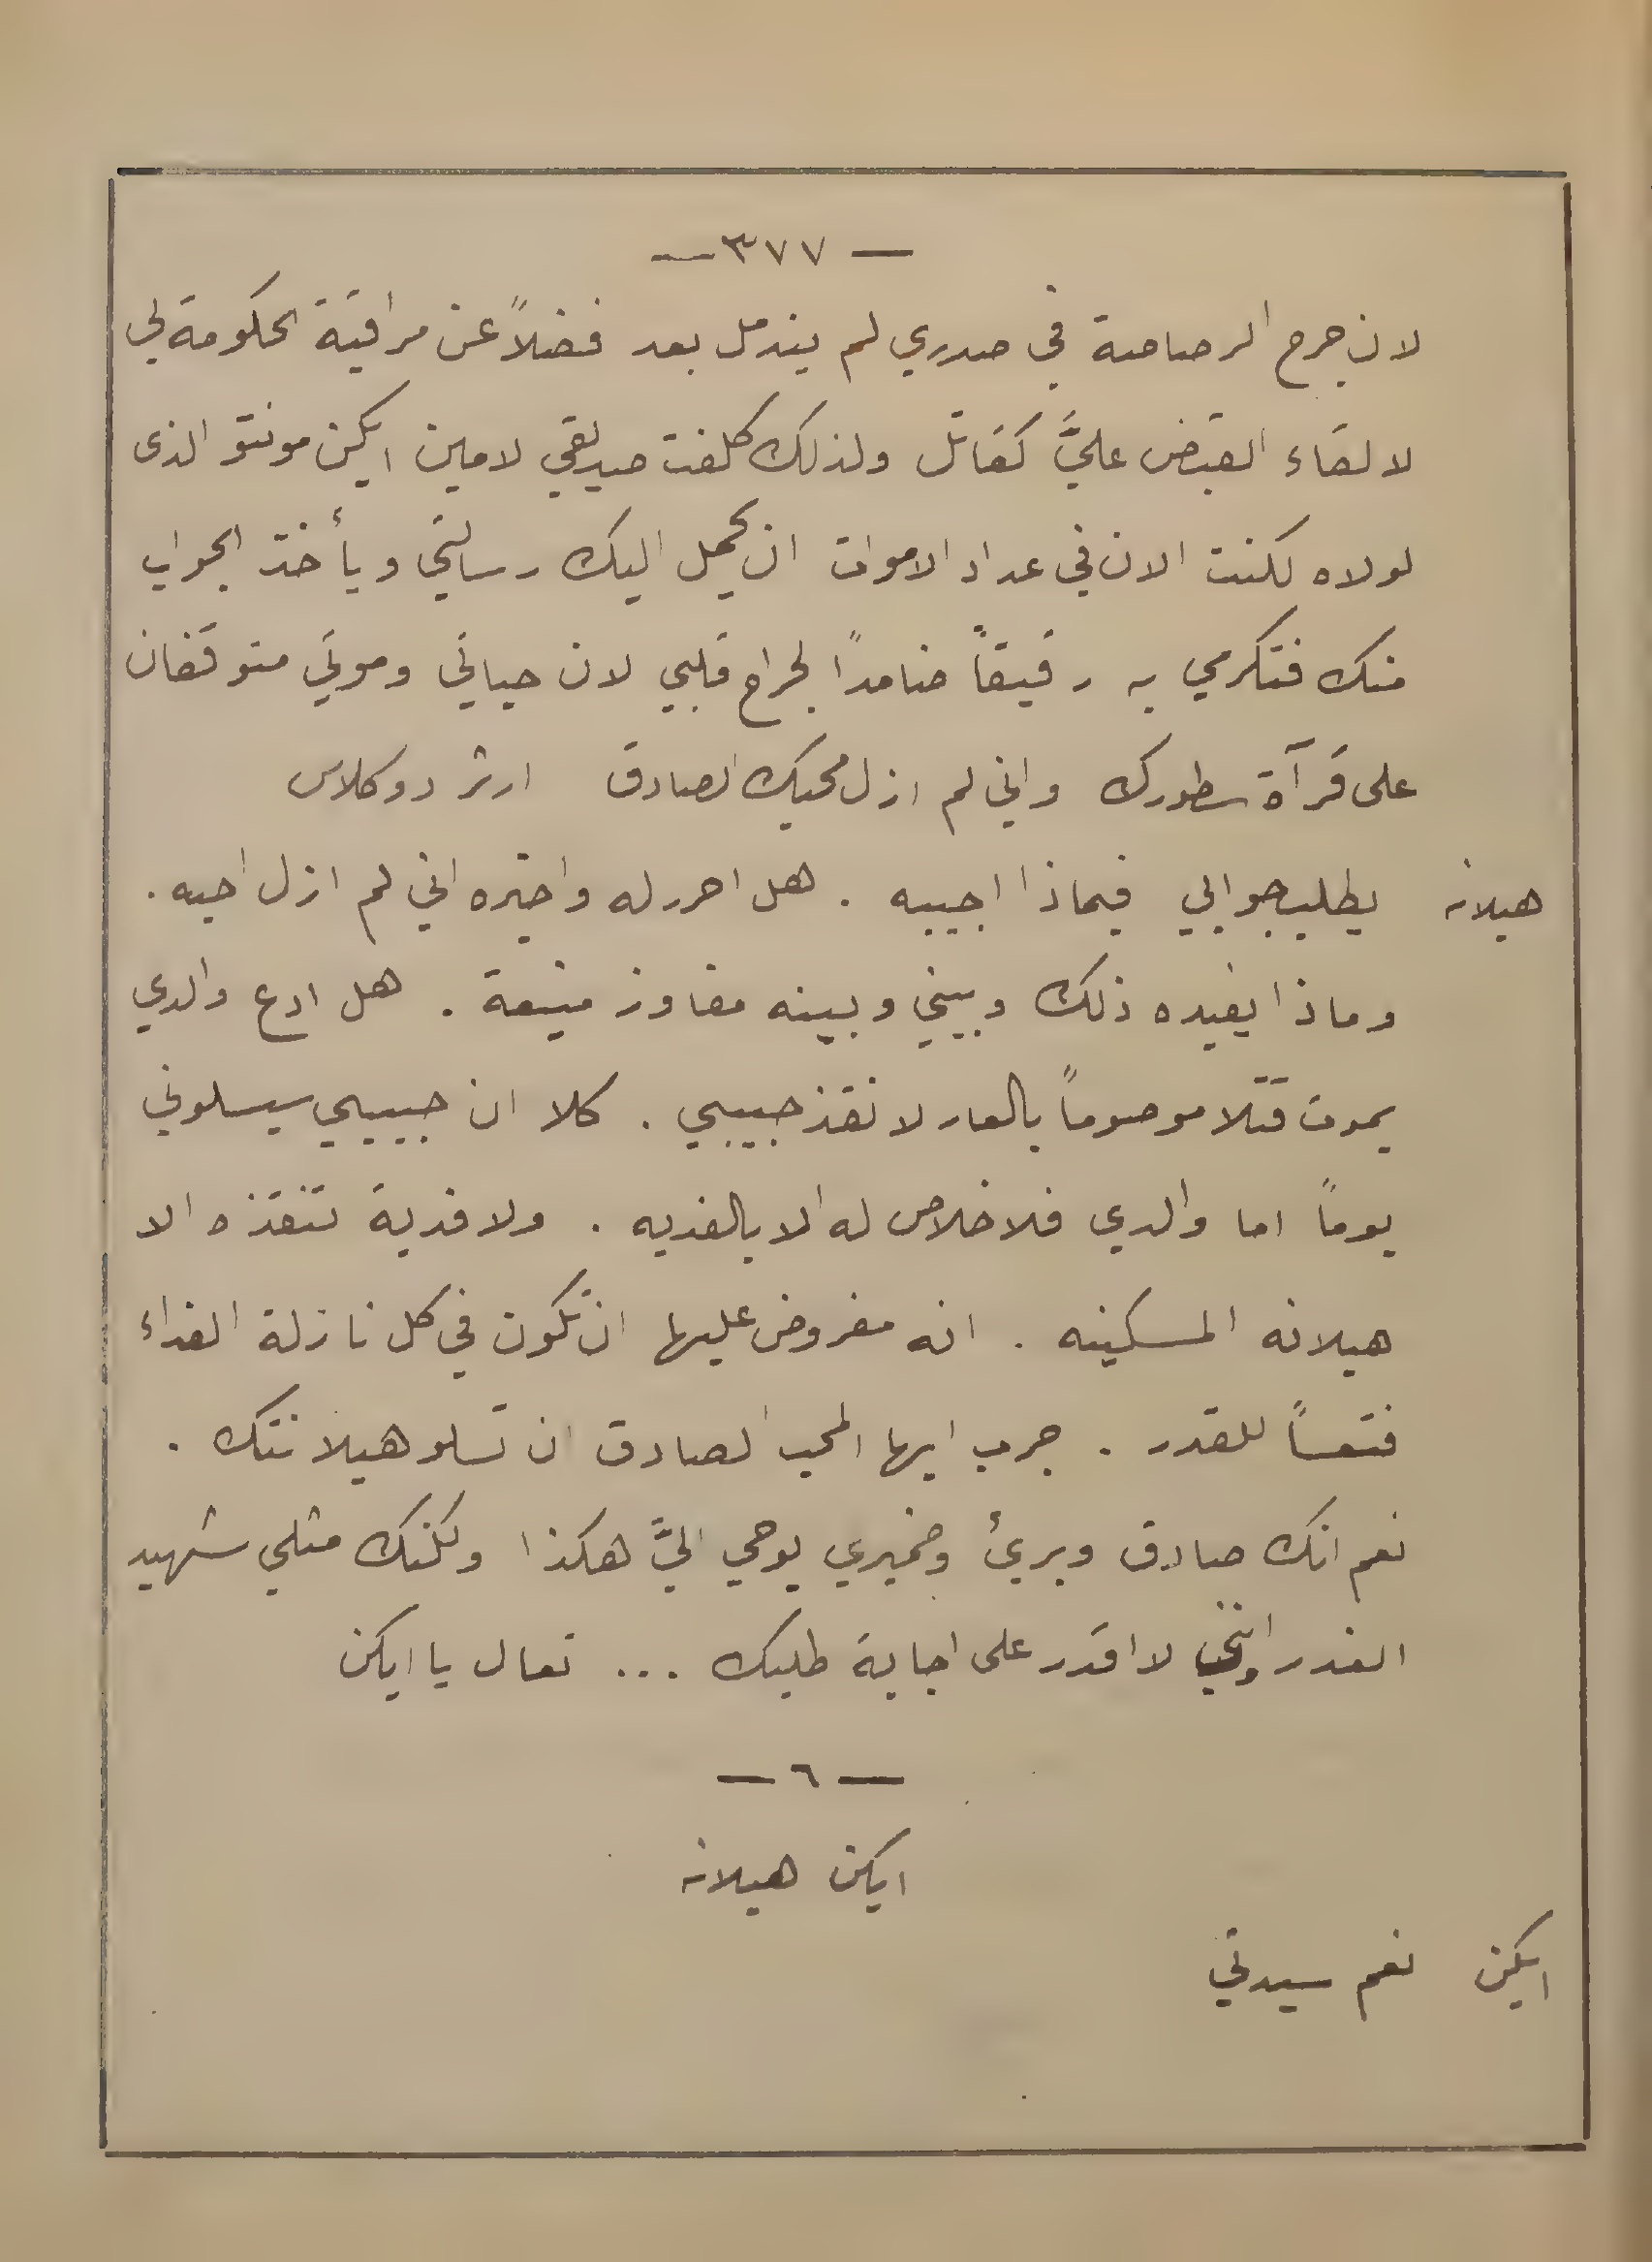 — ٣٧٧ —
لان جرح الرصاصة في صدري لم يندمل بعد فضلاً عن مراقبة الحكومة لي
لالقاء القبض عليَّ كقاتل ولذلك كلفت صديقي لامين ايكن مونتو الذى
لولاه لكنت الان في عداد الاموات ان يحمل اليك رسالتي ويأخذ الجواب
منك فتكرمي به رفيقاً ضامداً لجراح قلبي لان حياتي وموتي متوقفان
على قرآة سطورك واني لم ازل محبك الصادق ارثر دوكلاس
هيلانه يطلب جوابي فبماذا اجيبه . هل احرر له واخبره اني لم ازل احبه .
وماذا يفيده ذلك وبيني وبينه مفاوز منيعة . هل ادع والدي
يموت قتلا موصوماً بالعار لانقذ حبيبي . كلا ان حبيبي سيسلوني
يوماً اما والدي فلا خلاص له الا بالفديه . ولا فدية تنقذه الا
هيلانه المسكينه . انه مفروض عليها ان تكون في كل نازلة الفداء
فتعساً للقدر . جرب ايها المحب الصادق ان تسلو هيلانتك .
نعم انك صادق وبريئ وضميري يوحي اليَّ هكذا ولكنك مثلي شهيد
الغدر وانني لا اقدر على اجابة طلبك ... تعال يا ايكن
— ٦ —
ايكن هيلانه
ايكن نعم سيدتي